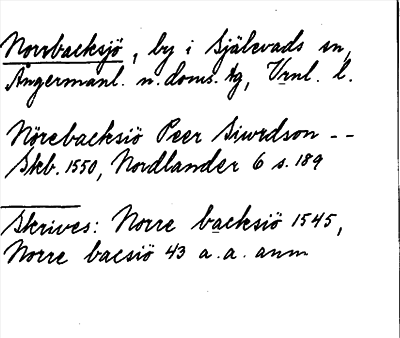 Norrbacksjö, by i Själevads sn,
Ångermanl. n. doms. tg, Vrnl. l.
Nörebacksiö Peer Siurdson - -
Skb. 1550, Nordlander 6 s. 189
Skrives: Norre backsiö 1545,
Norre bacsiö 43 a. a. anm